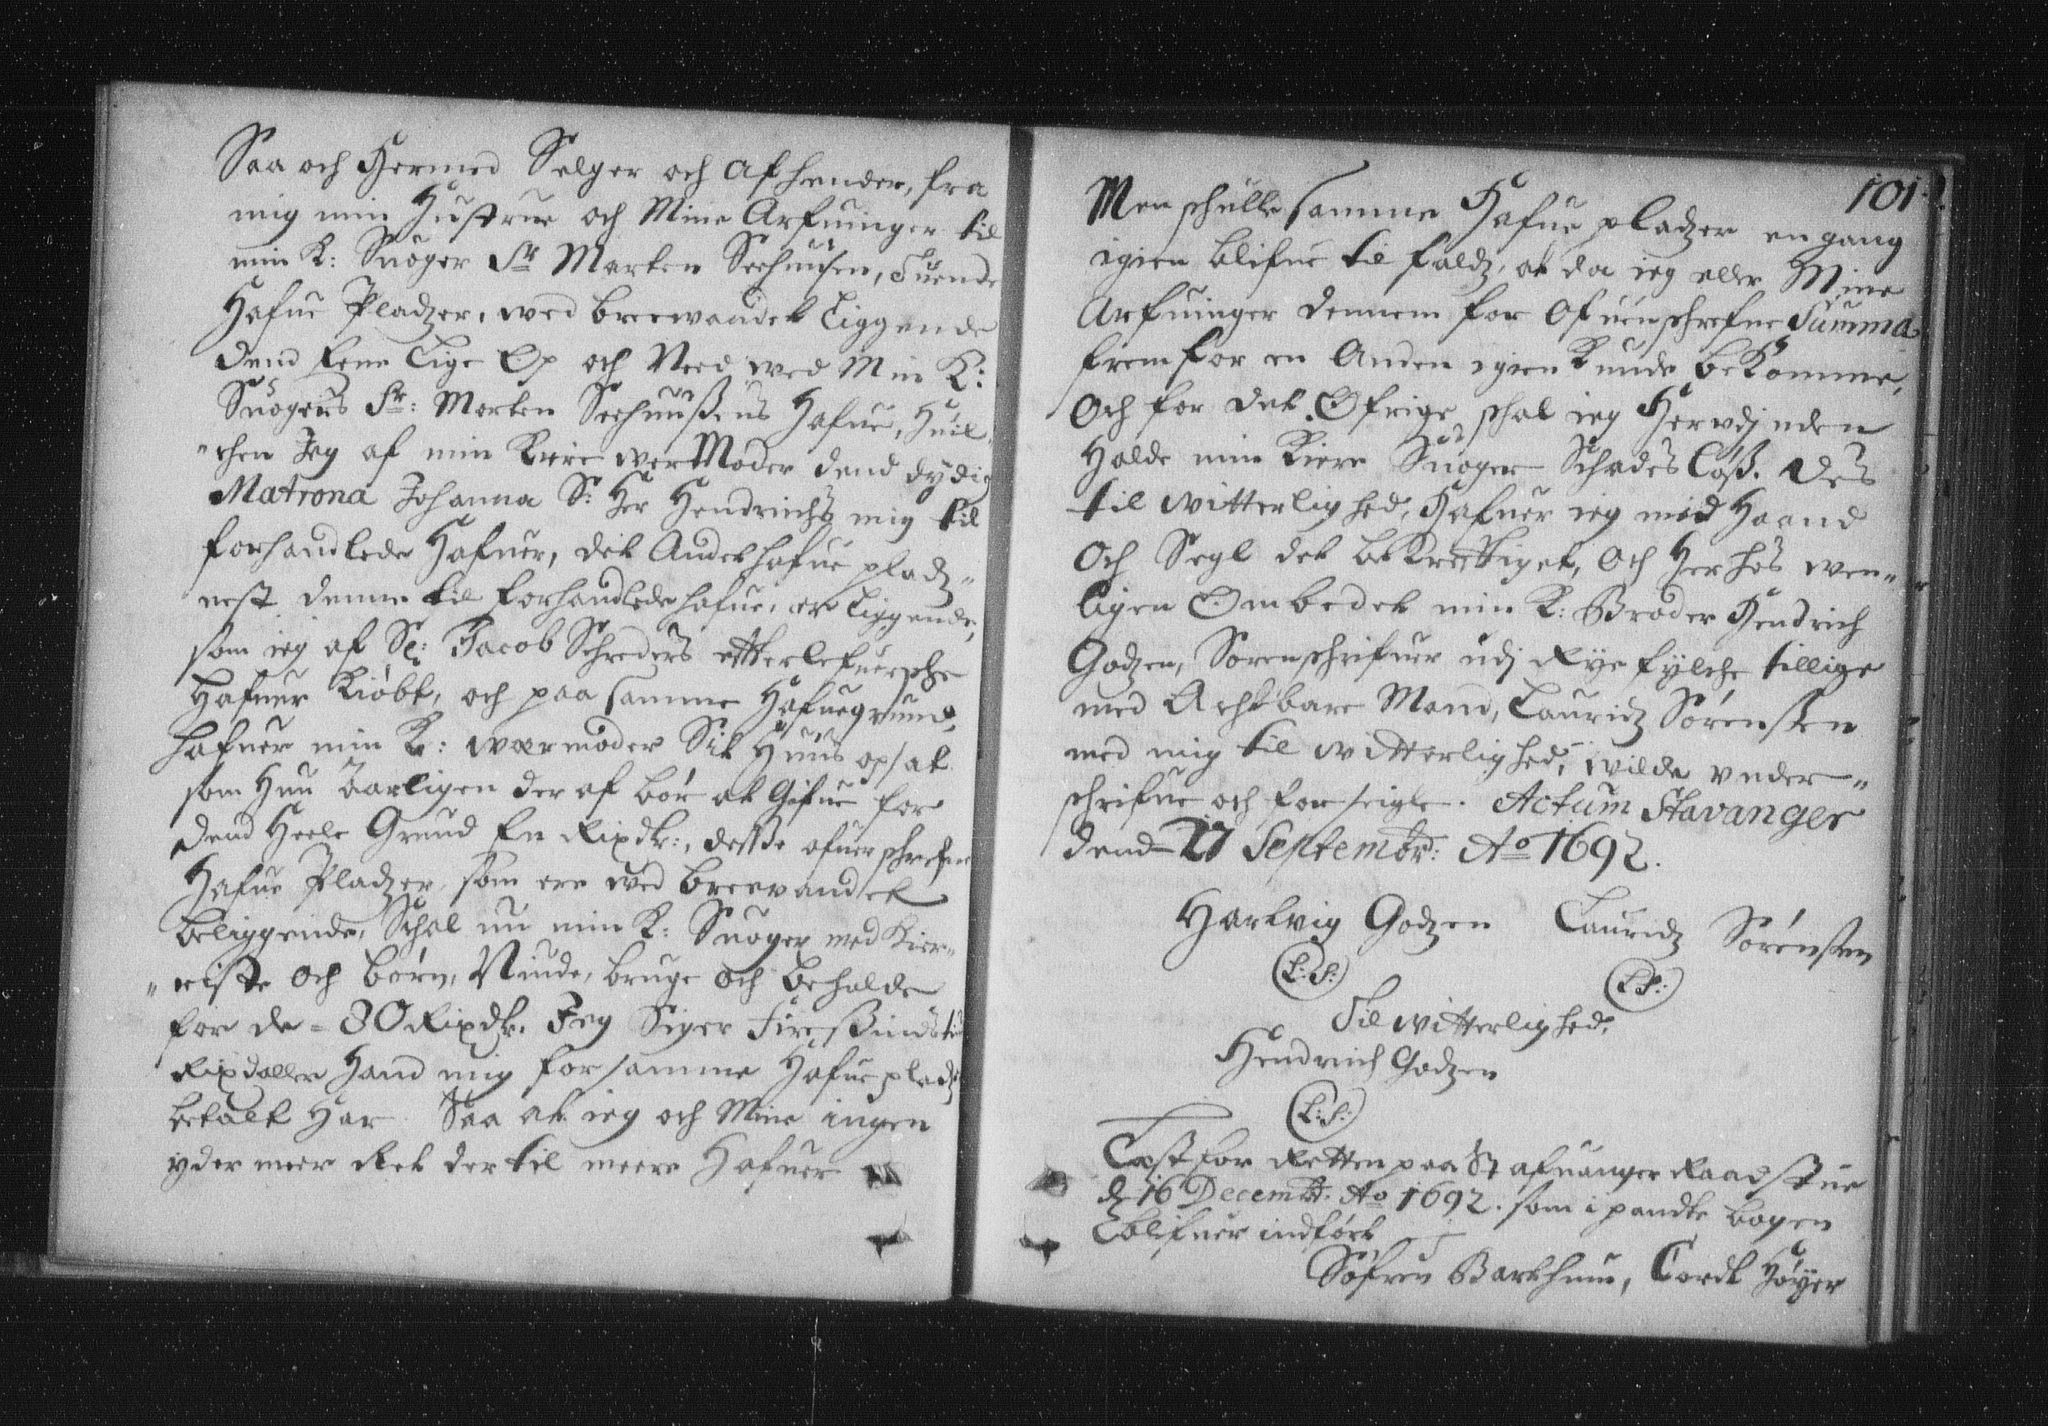 Saa och Hermed Selger och afhender, fra
mig min Hustrue och Mine Arfuinger til
min K: Suoger Sr Marten Seehuusen, Tuende
Hafue Pladzer, wed breewandet Liggende
dend Eene Lige Op och Need wed Min K:
Suogers Sr: Morten Seehuußens Hafue, Huil,,
,,chen Jeg af min Kiere wer Moder dend dydig
Matrona Johanna Sl: Her Hendrichs mig til
forhandlede Hafuer, det Andet hafue pladz,,
nest denne til forhandlede hafue, er Liggende,
som ieg af Sl: Jacob Schreders efterlefuersche
Hafuer Kiøbt, och paa samme Hafuegrund,
hafuer min K: wærmoder Sit Huus opsat
som Hun Aarligen der af bør at Gifue for
dend Heele Grund En Rixdr:, desse ofuerschrefne
Hafue Pladzer, som ere wed breevandet
beliggende, Schal nu min K: Suoger med Kier,,
,,niste och børn, Niude, bruge och beholde
for de - 80 Rixdr. Jeg Siger Firesindstiuf
Rixdaller Hand mig for samme Hafue pladz
betalt Har Saa at ieg och Mine ingen
yder meer Ret der til meere Hafuer
101.
Men schulle samme Hafue pladzer en gang
igien blifue til faldz, at da ieg eller Mine
Arfuinger dennem for Ofuenschrefne Summa
frem for en Anden igien kunde bekomme,
Och for det Øfrige schal ieg Herudjnden
Holde min Kiere Suoger Schades Løß. Des
til witterlighed, Hafuer ieg med Haand
Och Segl det bekreftiget, Och Her hos wen,,
ligen Ombedet min K: Broder Hendrich
Godzen, Sorenschrifuer udj Rye fylche tillige
med Achtbare Mand, Lauridz Sørensen
med mig til witterlighed, wilde vnder,,
schrifue och forseigle. Actum Stavanger
dend 27 Septembr: Ao 1692.
Hartvig Godzen Lauridz Sørensen
(L:S:) (L:S:)
Til witterlighed,
Hendrich Godzen
(L:S:)
Læst for Retten paa Stafuanger Raadstue
d 16 Decembr: Ao 1692. som i pandte bogen
blifuer indført
Søfren Barkhuus, Cordt Høyer